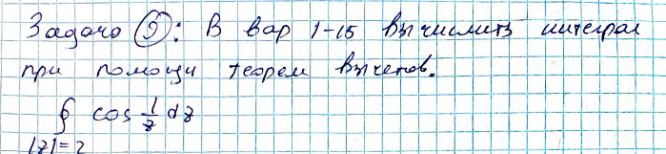 Задача (5): В вар 1-15 вычислить интеграл
при помощи теорем вычетов.
∮ cos 1/z dz
|z|=2